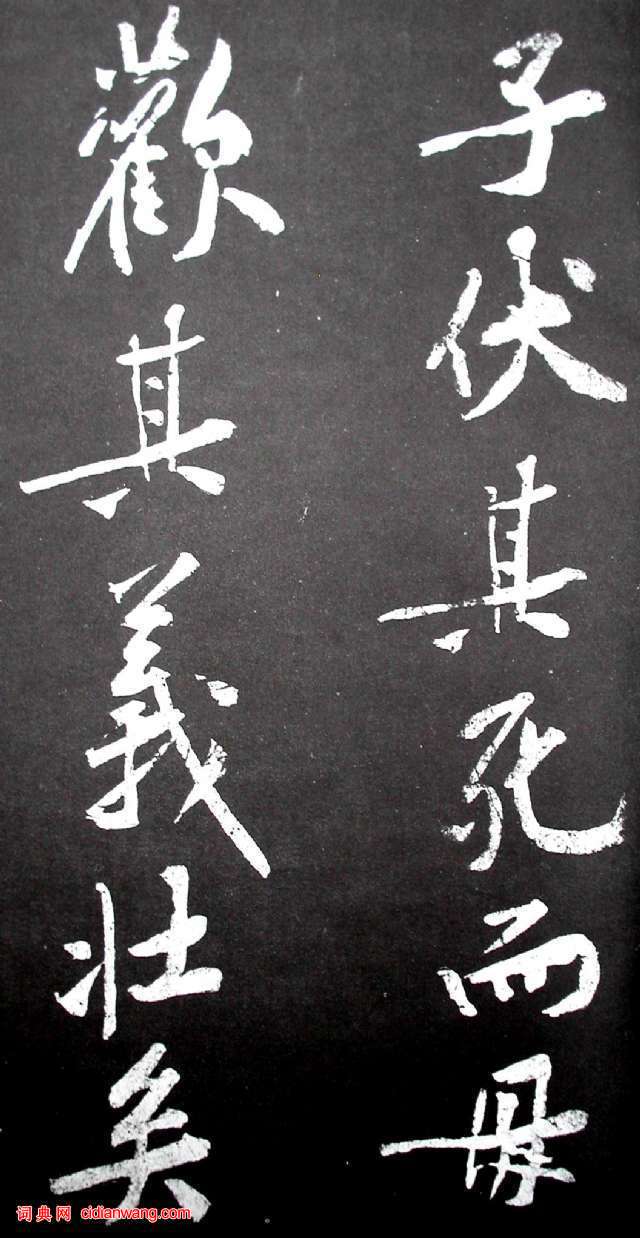 子伏其死而毋
歡其義壯矣
词典网 cidianwang.com